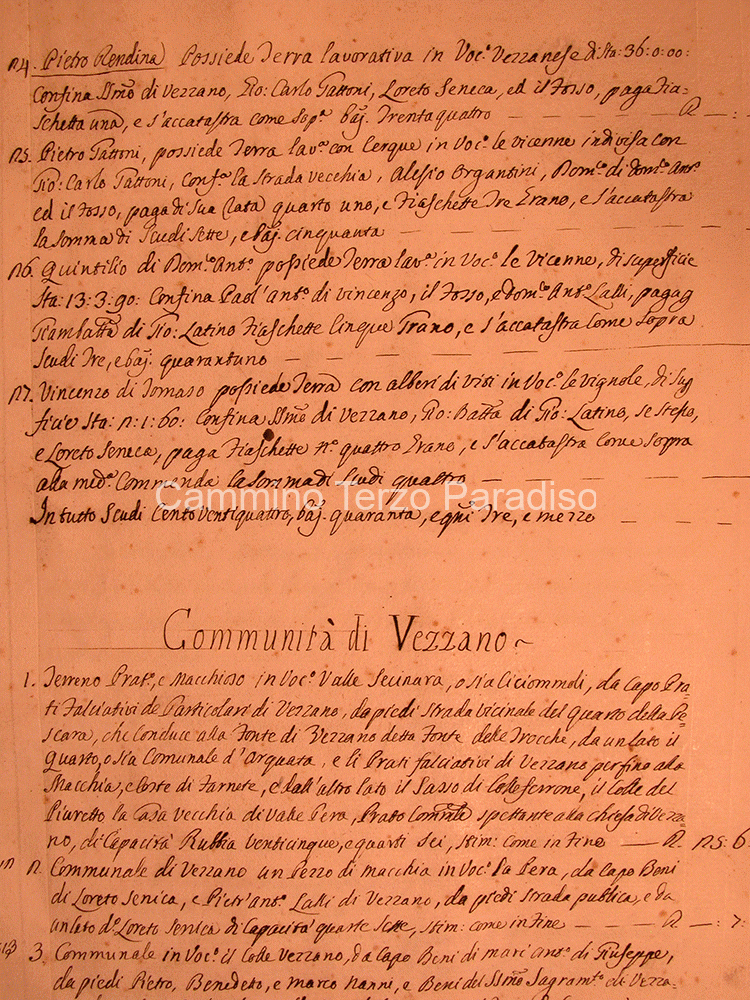 n4. Pietro Rendina) Possiede Terra lavorativa in Voc.° Vezzanese di Sta: 36:0:00:
Confina SSmo di Vezzano, Gio: Carlo Gattoni, Loreto Seneca, ed il fosso, paga Fia-
schetta una, e s'accatastra come sop.a baj. Trentaquattro — R —:
n5. Pietro Gattoni, possiede Terra lav.a con Cerque in Voc.° le vicenne indivisa con
Gio: Carlo Gattoni, Conf.a la strada vecchia, Alesio Organtini, Dom.co di Dom.co Ant.°
ed il fosso, paga di sua rata quarto uno, e Fiaschette Tre Grano, e s'accatastra
la somma di Scudi Sette, e baj. cinquanta —
n6. Quintilio di Dom.co Ant.° possiede Terra lav.a in Voc.° le Vicenne, di superficie
Sta: 13:3:90: Confina Paol'ant.° di vincenzo, il fosso, e dom.co Ant.° Lalli, paga
Giambatta di Gio: Latino Fiaschette Cinque Grano, e s'accatastra Come sopra
Scudi Tre, e baj. quarantuno —
n7. Vincenzo di Tomaso possiede Terra con alberi di viti in Voc.° le vignole, di Sup
ficie Sta: n:1:60: Confina SSmo di Vezzano, Gio: Batta di Gio: Latino, se stesso,
e Loreto Seneca, paga Fiaschette n.° quattro Grano, e s'accatastra Come sopra
alla med.a Commenda la somma di Scudi quattro —
In tutto Scudi Cento Ventiquattro, baj. quaranta, e qni Tre, e mezzo —
Cammino Terzo Paradiso
Communità di Vezzano~
1. Terreno Prat.°, e Macchioso in Voc.° Valle Secinara, o sia Ciciommoli, da Capo Pra-
ti Falciativi de Particolari di Vezzano, da piedi strada vicinale del Quarto della Pe-
scara, che conduce alla Fonte di Vezzano detta Fonte delle Trocche, da un lato il
Quarto, o sia Comunale d'Arquata, e li Prati falciativi di Vezzano perfino alla
Macchia, e Coste di Farnete, e dall'altro lato il Sasso di Colleferrone, il Colle del
Piuretto la Casa vecchia di Valle Pera, Pratto Comnale spettante alla chiesa di Vezza-
no, di Capacità Rubbia Venticinque, e quarti sei, stim: come in Fine — R. n5:6
n. Communale di Vezzano un Pezzo di macchia in Voc.° la Pera, da Capo Beni
di Loreto Senica, e Pietr'ant.° Lalli di Vezzano, da piedi strada publica, e da
un lato d.° Loreto Senica di Capacità quarte Sette, stim: come in Fine — R —:7:
3. Communale in Voc.° il Colle Vezzano, da Capo Beni di mari'ant.° di Giuseppe,
da piedi Pietro, Benedeto, e marco nanni, e Beni del SSmo Sagram.to di Vezza-